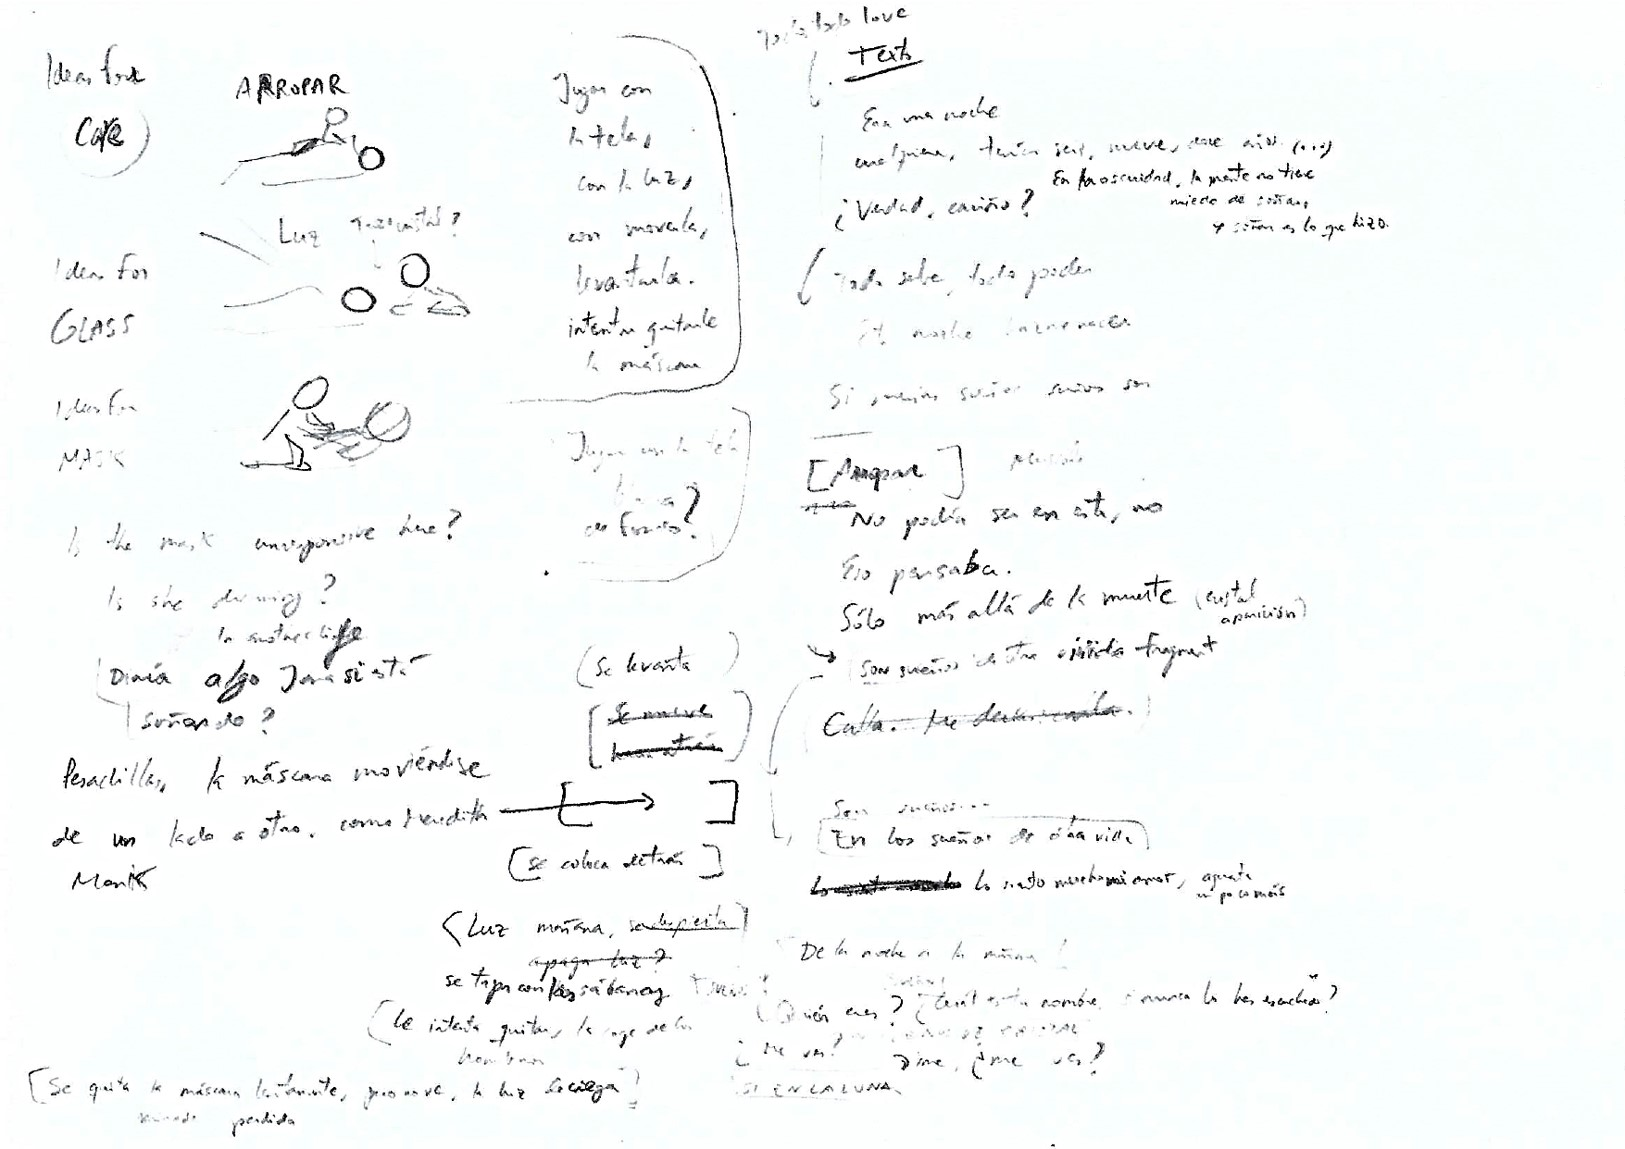 Ideas for
CARE
ARROPAR
Luz
Ideas for
GLASS
Ideas for
MASK
Is the mask unresponsive here?
Is she dreaming?
In another life
Diría algo Jana si está
soñando?
Pesadillas, la máscara moviéndose
de un lado a otro. como Meredith
Monk
Jugar con
la tela,
con la luz,
con moverla,
levantarla.
intentar quitarle
la máscara
Jugar con la tela
(Se levanta)
[Se mueve
hacia atrás]
[ ]
[Se coloca detrás]
(Luz mañana, se despierta)
apaga luz?
se tapa con las sábanas
(le intenta quitar, la coge de los
hombros
[Se quita la máscara lentamente, pero no ve, la luz le ciega]
perdida
love
Texto
Era una noche
cualquiera, tenía seis, nueve, once años (...)
En la oscuridad, la mente no tiene
miedo de soñar,
y soñar es lo que hizo.
¿Verdad, cariño?
Todo sabe, todo poder
noche
Si
[Arropar]
No podía ser en esta, no
Eso pensaba.
Sólo más allá de la muerte (cristal
aparición)
Son sueños de otra vida fragment
Calla.
Son sueños...
(En los sueños de otra vida)
lo siento mucho mi amor, aguanta
un poco más
De la noche a la mañana
¿Quién eres? ¿Cuál es tu nombre, si nunca lo has escuchado?
¿Me ves? Dime, ¿me ves?
SI EN LA LUNA